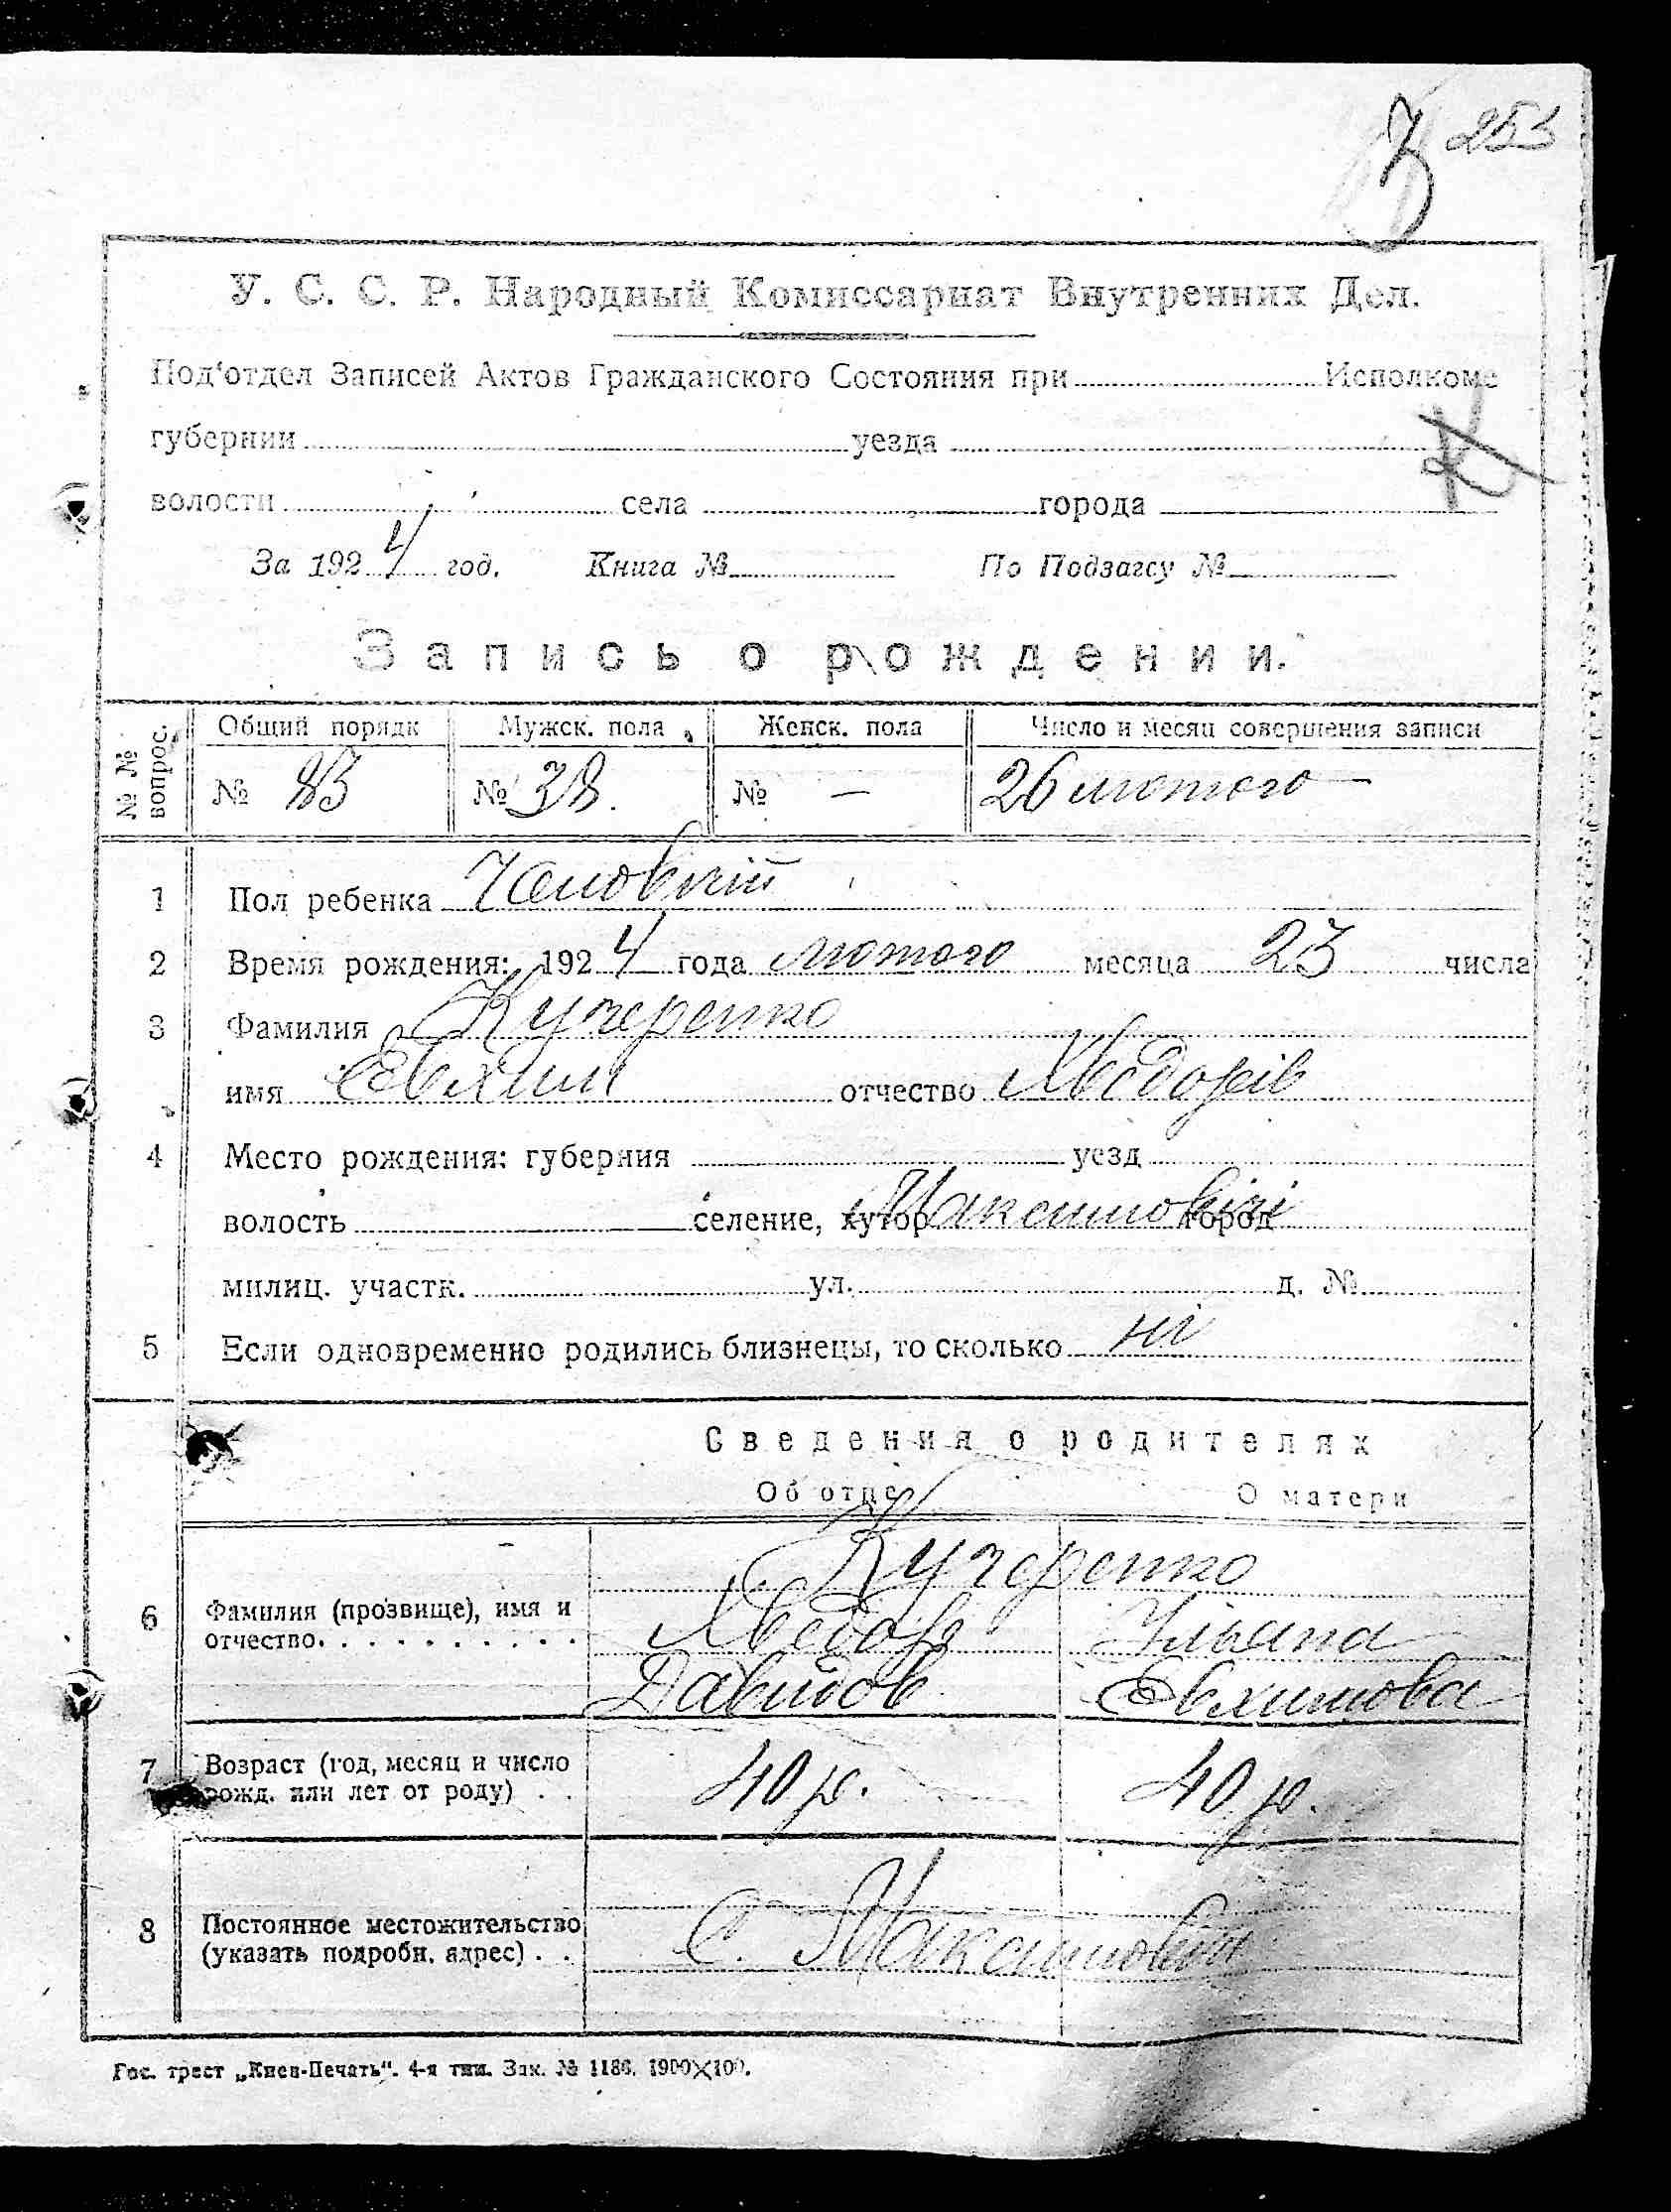 3 253
У. С. С. Р. Народный Комиссариат Внутренних Дел.
Под'отдел Записей Актов Гражданского Состояния при Исполкоме
губернии уезда
К
волости села города
За 1924 год. Книга № По Подзагсу №
Запись о рождении.
№ № вопрос. Общий порядк Мужск. пола Женск. пола Число и месяц совершения записи
№ 83 № 38. № — 26 лютого —
1 Пол ребенка Чоловічій
2 Время рождения: 1924 года лютого месяца 23 числа
3 Фамилия Кучеренко
имя Євхим отчество Хведорів
4 Место рождения: губерния уезд
волость селение, хутор Максимовічі город
милиц. участк. ул. д. №
5 Если одновременно родились близнецы, то сколько ні
Сведения о родителях
Об отце О матери
Кучеренко
6 Фамилия (прозвище), имя и
отчество. Хведор Уляна
Давидов Євхимова
7 Возраст (год, месяц и число
рожд. или лет от роду) 40 р. 40 р.
8 Постоянное местожительство
(указать подробн. адрес) С. Максимовічі
Гос. трест „Киев-Печать“. 4-я тип. Зак. № 1186. 1900×100.